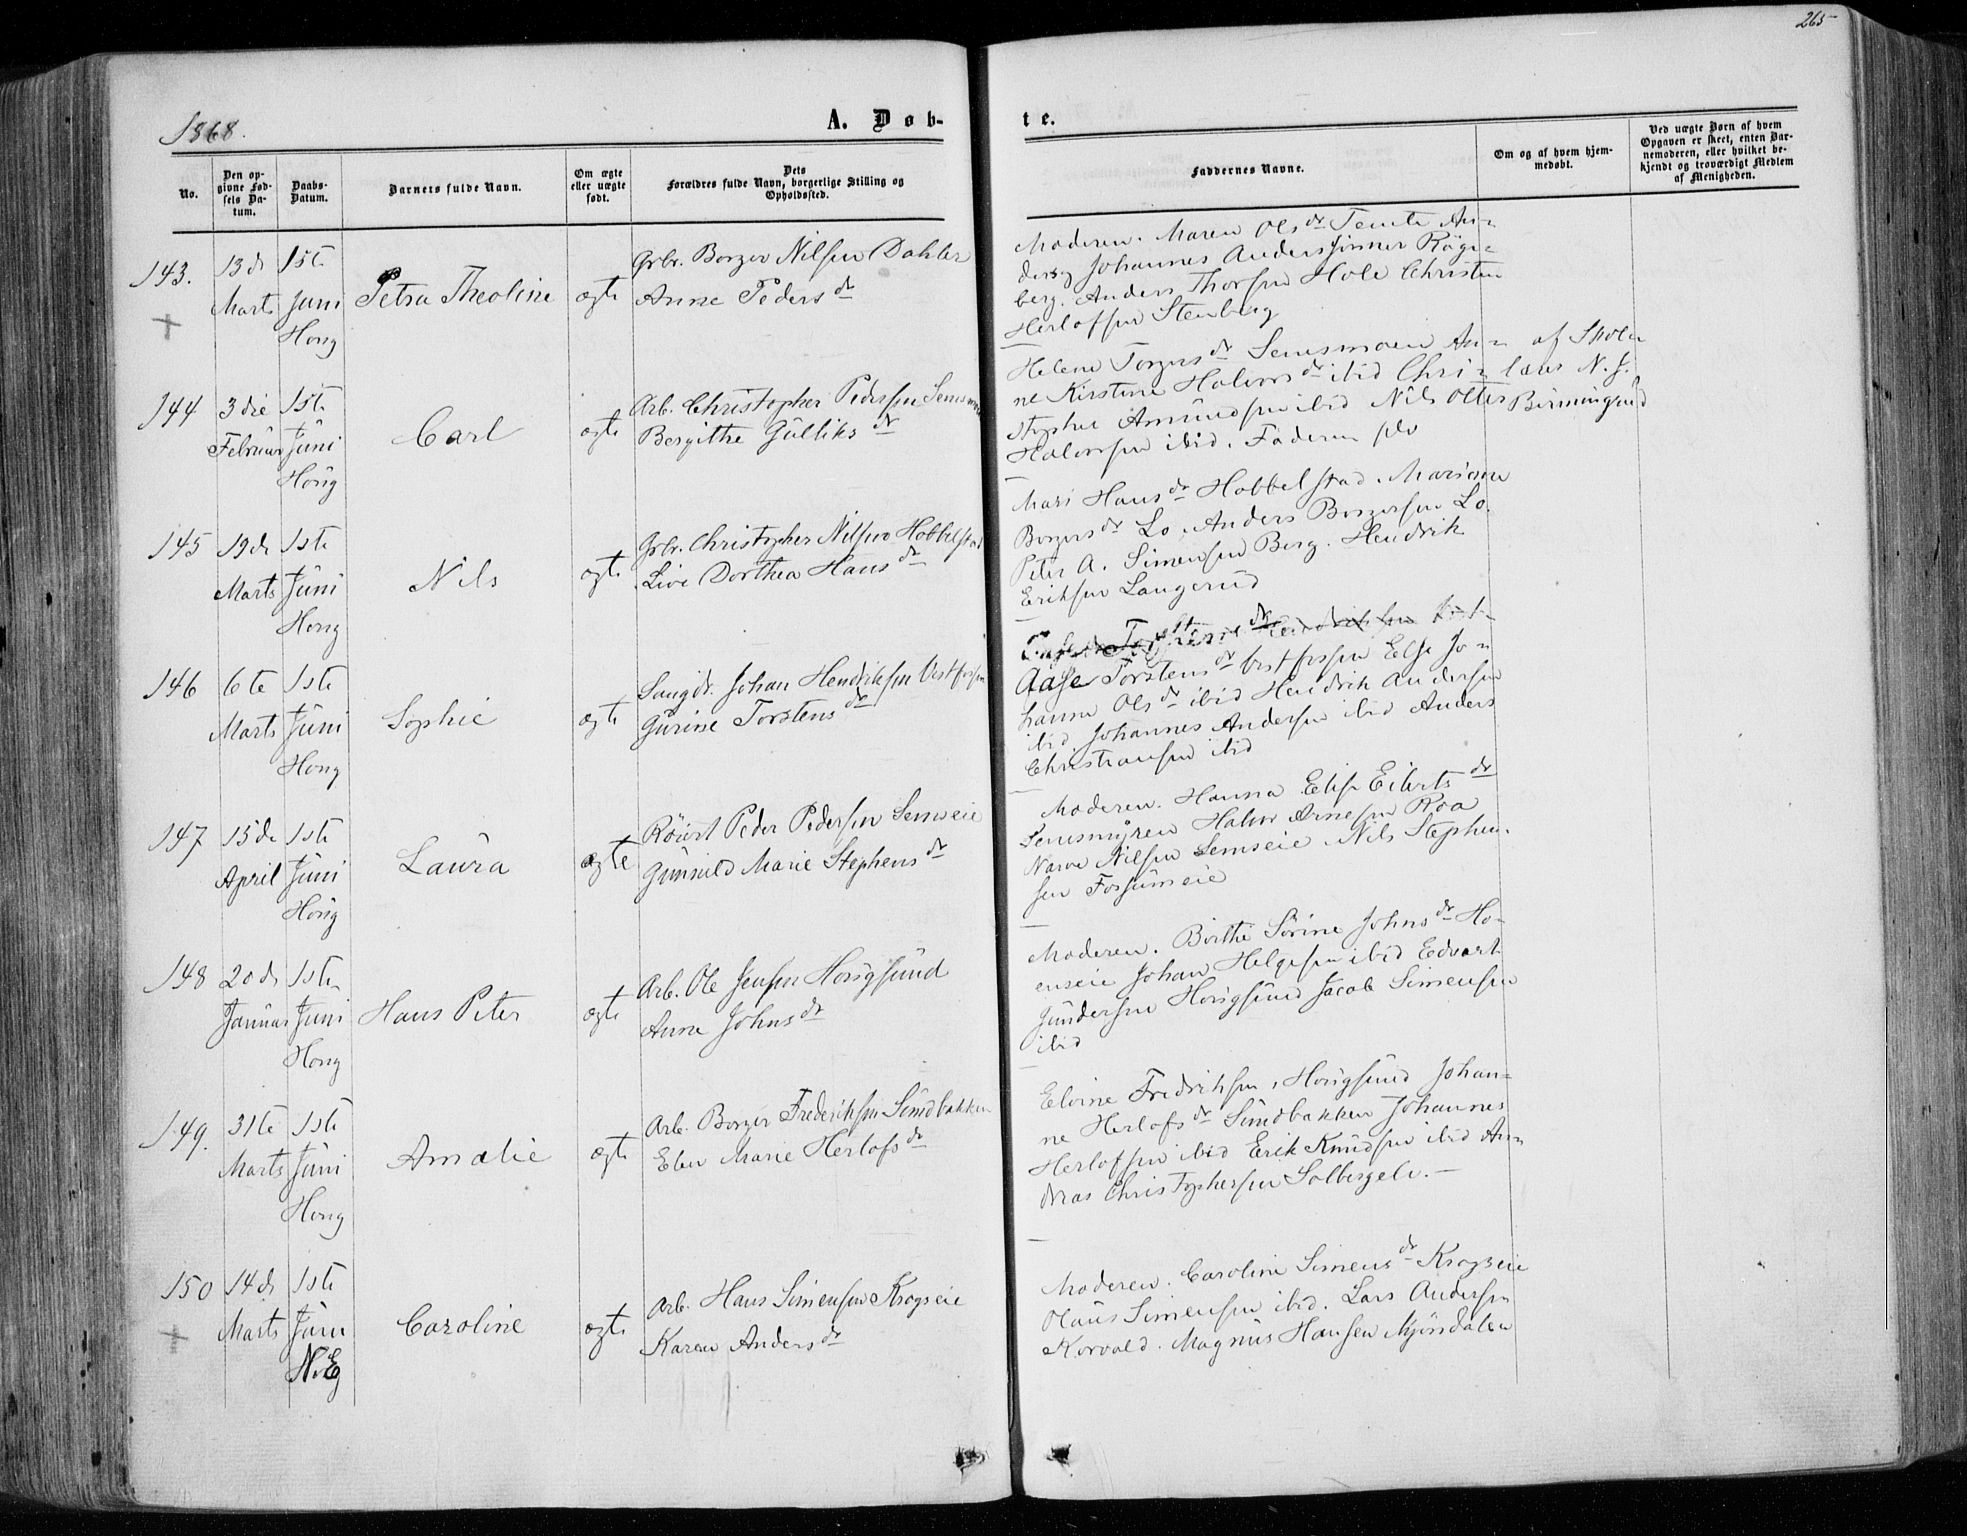 265
1868.
A. Døb-
te.
No.
Den op-
givne Fød-
sels Da-
tum.
Daabs-
Datum.
Barnets fulde Navn.
Om ægte
eller uægte
født.
Dets
Forældres fulde Navn, borgerlige Stilling og
Opholdssted.
Faddernes Navne.
Om og af hvem hjem-
medøbt.
Ved uægte Børn af hvem
Opgaven er skeet, enten Bar-
nemoderen, eller hvilket be-
kjendt og troværdigt Medlem
af Menigheden.
143.
13de
Marts
1ste
Juni
Houg
Petra Theoline
ægte
Grbr. Borger Nilsen Dahler
Anne Peders dr
Moderen. Maren Ols dr Temte An-
ders Johannes Anders Røge-
berg. Anders Thorsen Hole Christen
Herlofsen Stenberg
144
3die
Februar
1ste
Juni
Houg
Carl
ægte
Arb. Christopher Pedersen Semsmoen
Bergithe Gulliks dr
Helene Torgers dr Semsmoen An-
ne Kirstine Halvors dr ibid Chri-
stopher Amundsen ibid Nils Otter
Halvorsen ibid. Faderen selv
af Skole
lærer N. J.
Birmingrud
145
19de
Marts
1ste
Juni
Houg
Nils
ægte
Grbr. Christopher Nilsen Hobbelstad
Live Dorthea Hans dr
Mari Hans dr Hobbelstad. Mariane
Borgers dr Lo. Anders Borgersen Lo.
Peter A. Simensen Berg. Hendrik
Eriksen Langerud
146
6te
Marts
1ste
Juni
Houg
Sophie
ægte
Saugdr. Johan Hendriksen Vestfossen
Gurine Torstens dr
Aase Torstens dr Vestfossen Else Jo-
hanne Ols dr ibid Hendrik Andersen
ibid. Johannes Andersen ibid Anders
Christiansen ibid
147
15de
April
1ste
Juni
Houg
Laura
ægte
Røiert Peder Pedersen Semseie
Gunild Marie Stephens dr
Moderen. Hanna Elise Eilerts dr
Semsmyren Halvor Arnesen Roa
Narve Nilsen Semseie. Nils Stephen-
sen Fossumeie
148
20de
Januar
1ste
Juni
Houg
Hans Peter
ægte
Arb. Ole Jensen Hougsund
Anne Johns dr
Moderen. Borthe Sørine Johns dr Ho-
enseie Johan Helgesen ibid Edvart
Gundersen Hougsund Jacob Simensen
ibid
149.
31te
Marts
1ste
Juni
Houg
Amalie
ægte
Arb. Borger Frederiksen Sundbakken
Elen Marie Herlofs dr
Elvine Fredriksen, Hougsund Johan-
ne Herlofs dr Sundbakken Johannes
Herlofsen ibid Erik Knudsen ibid An-
dreas Christophersen Solbergelv.
150
14de
Marts
1ste
Juni
N. Eg
Caroline
ægte
Arb. Hans Simensen Krogseie
Karen Anders dr
Moderen. Caroline Simens dr Krogseie
Olaus Simensen ibid. Lars Andersen
Korvald. Magnus Hansen Mjøndalen